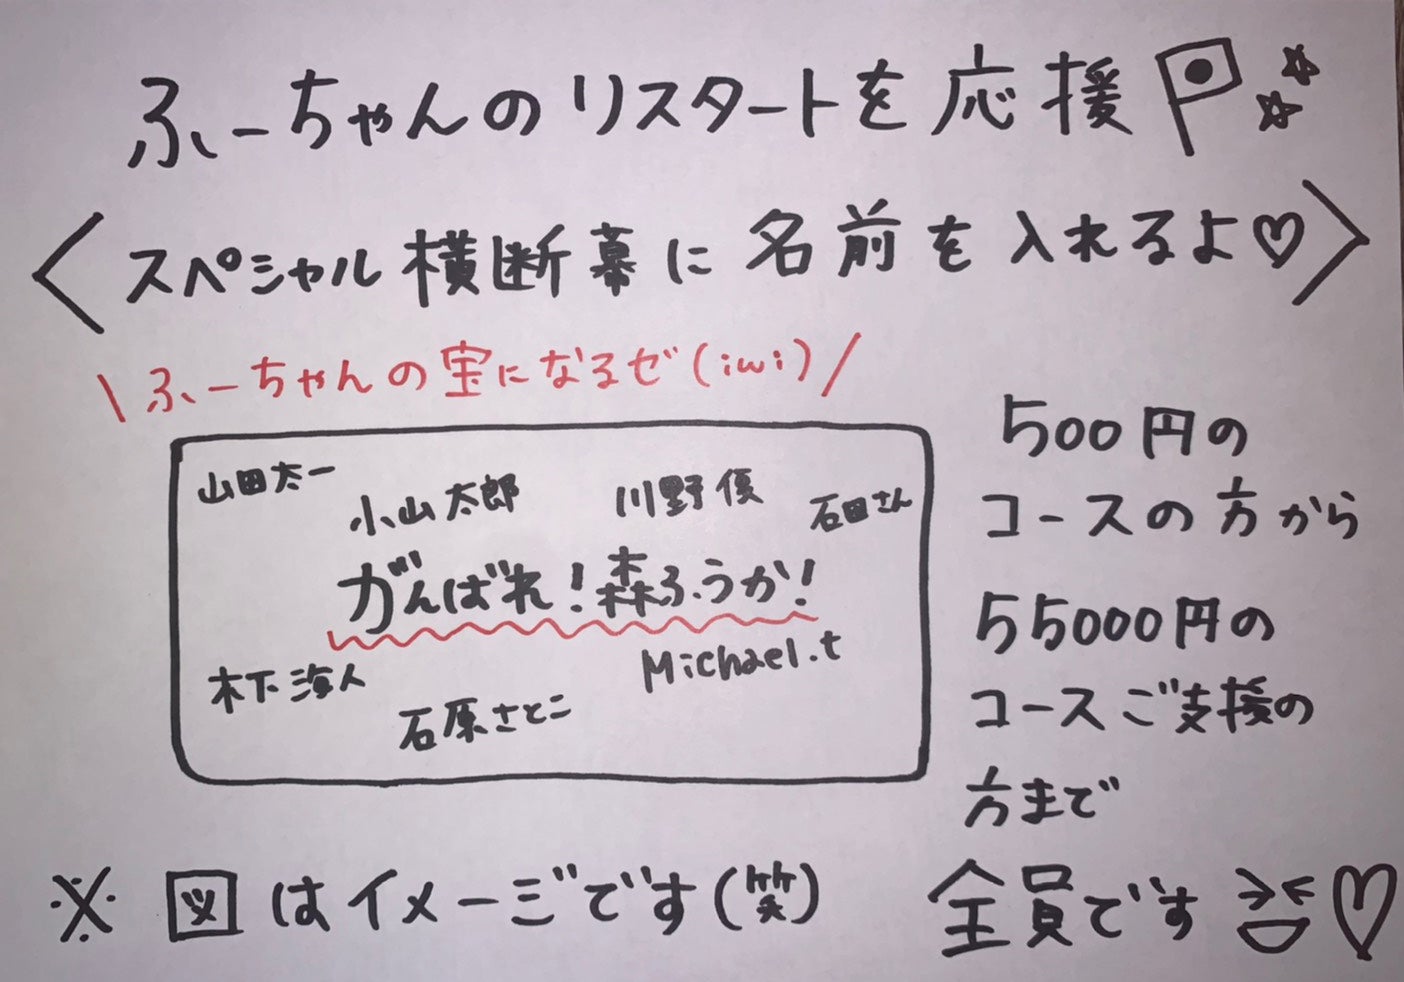 ふーちゃんのリスタートを応援
〈スペシャル横断幕に名前を入れるよ♡〉
\ふーちゃんの宝になるぜ(;w;)/
山田太一
小山太郎
川野優
石田さん
がんばれ!森ふうか!
木下海人
石原さとこ
Michael.t
500円の
コースの方から
55000円の
コースご支援の
方まで
全員です
※図はイメージです(笑)